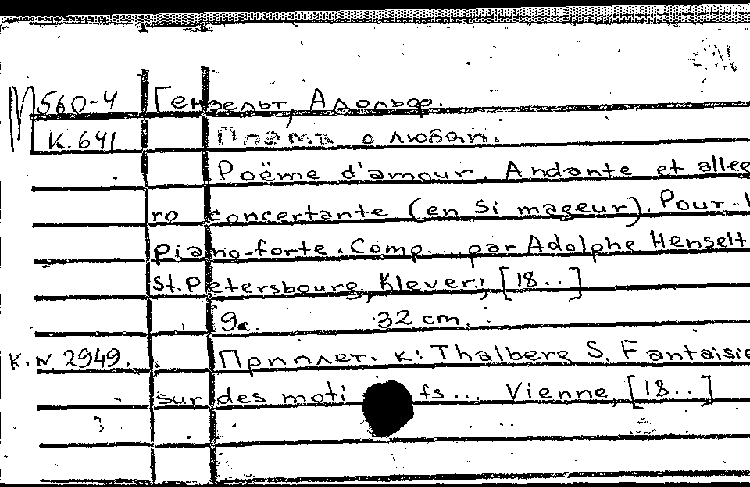 М 560-4 Гензельт, Адольф.
к. 641 Поэма о любви.
Poëme d'amour. Andante et alleg
ro concertante (en si majeur). Pour
piano-forte. Comp. par Adolphe Henselt
St. Petersbourg, Klever, [18..]
9с. 32 cm.
К. N 2949. Приплет. к: Thalberg S. Fantaisie
sur des moti fs... Vienne, [18..]